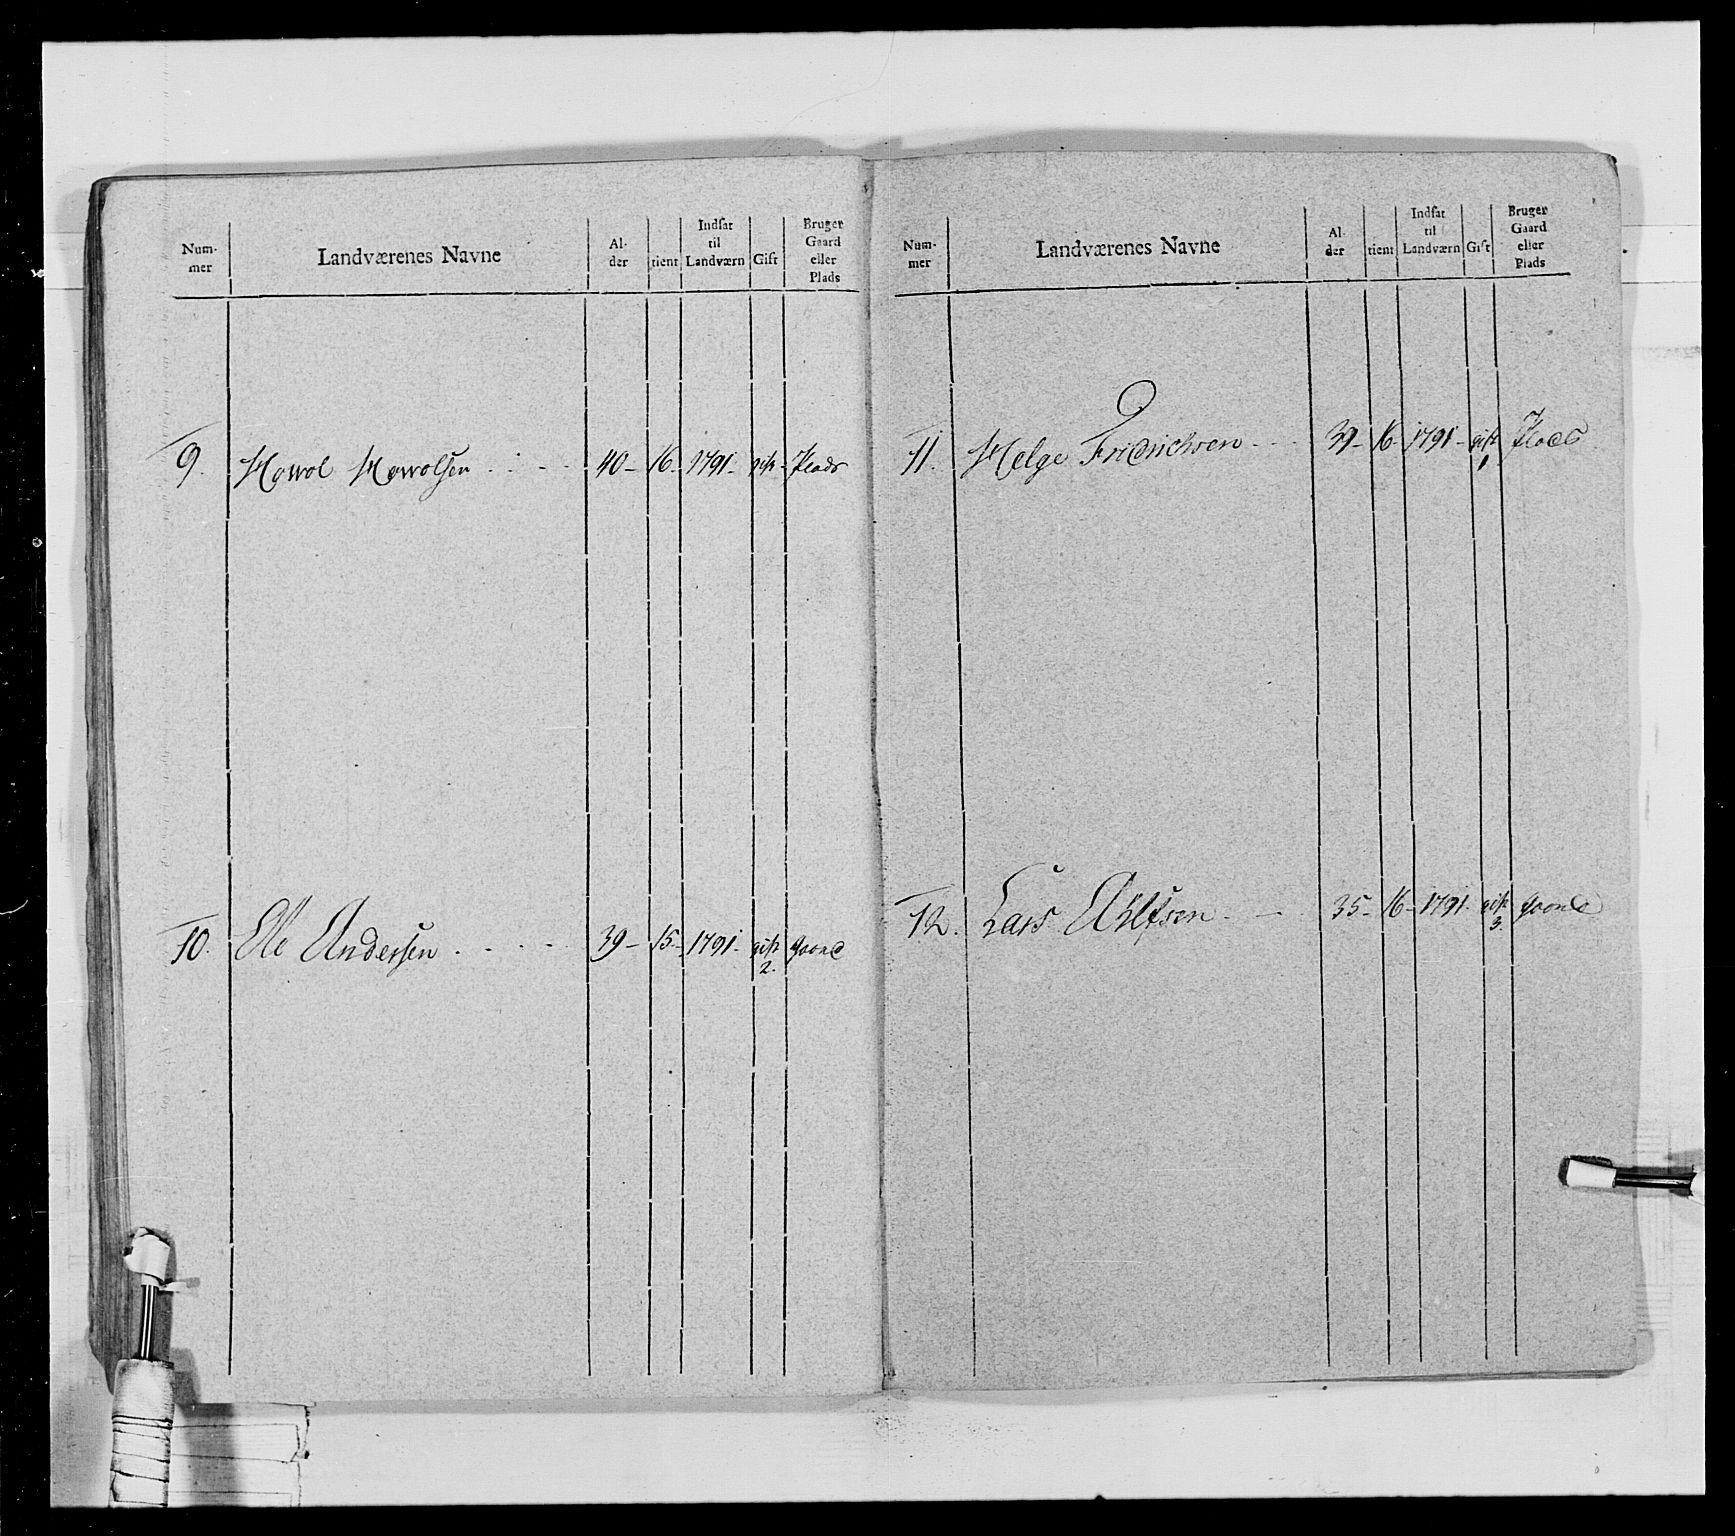 Num-
mer
Landværenes Navne
Al-
der
tient
Indsat
til
Landværn
Gift
Bruger
Gaard
eller
Plads
9. Hawol Hawolsen 40 - 16 - 1791 - gift - Plads
10. Ole Andersen 39 - 15 - 1791 - gift gaard
2.
Num-
mer
Landværenes Navne
Al-
der
tient
Indsat
til
Landværn
Gift
Bruger
Gaard
eller
Plads
11. Helge Fridrichsen 39 - 16 - 1791 - gift Plads
1
12. Lars 35 - 16 - 1791 - gift gaard
3.